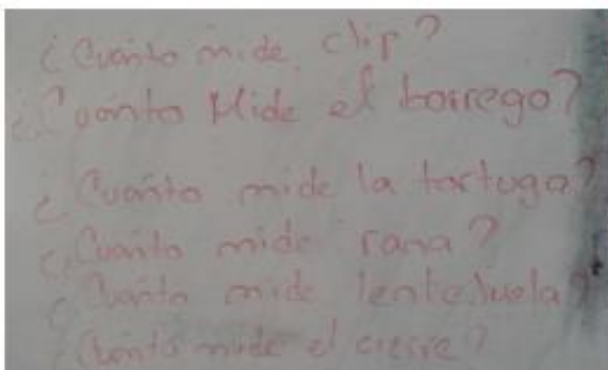 ¿Cuánto mide clip?
¿Cuánto Mide el borrego?
¿Cuánto mide la tortuga?
¿Cuánto mide rana?
¿Cuánto mide lentejuela?
¿Cuánto mide el cierre?